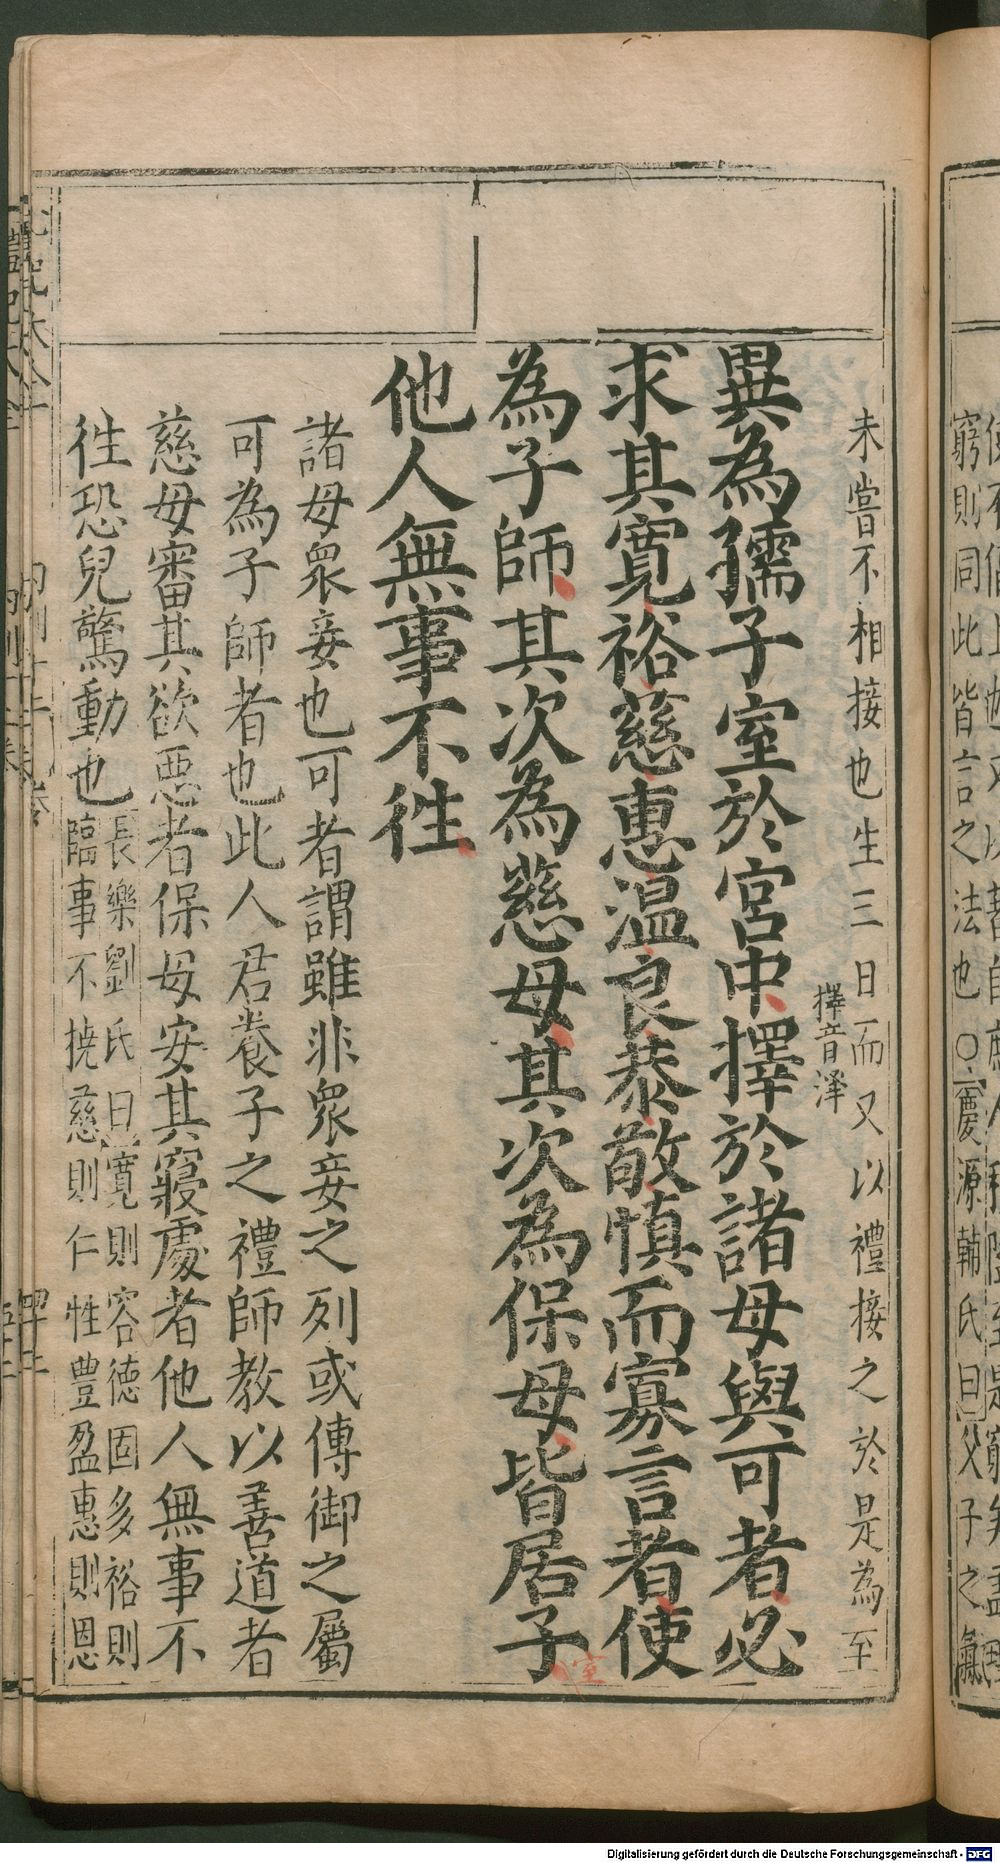 未嘗不相接也生三日而又以禮接之於是為至
擇音澤
異為孺子室於宮中擇於諸母與可者必
求其寬裕慈惠温良恭敬慎而寡言者使
為子師其次為慈母其次為保母皆居子
室
他人無事不徃
諸母衆妾也可者謂雖非衆妾之列或傅御之屬
可為子師者也此人君養子之禮師教以善道者
慈母審其欲惡者保母安其寢處者他人無事不
徃恐兒驚動也
長樂劉氏曰寬則容德固多裕則
臨事不撓慈則仁性豐盈惠則恩
窮則同此皆言之法也○慶源輔氏曰父子之氣
Digitalisierung gefördert durch die Deutsche Forschungsgemeinschaft - DFG